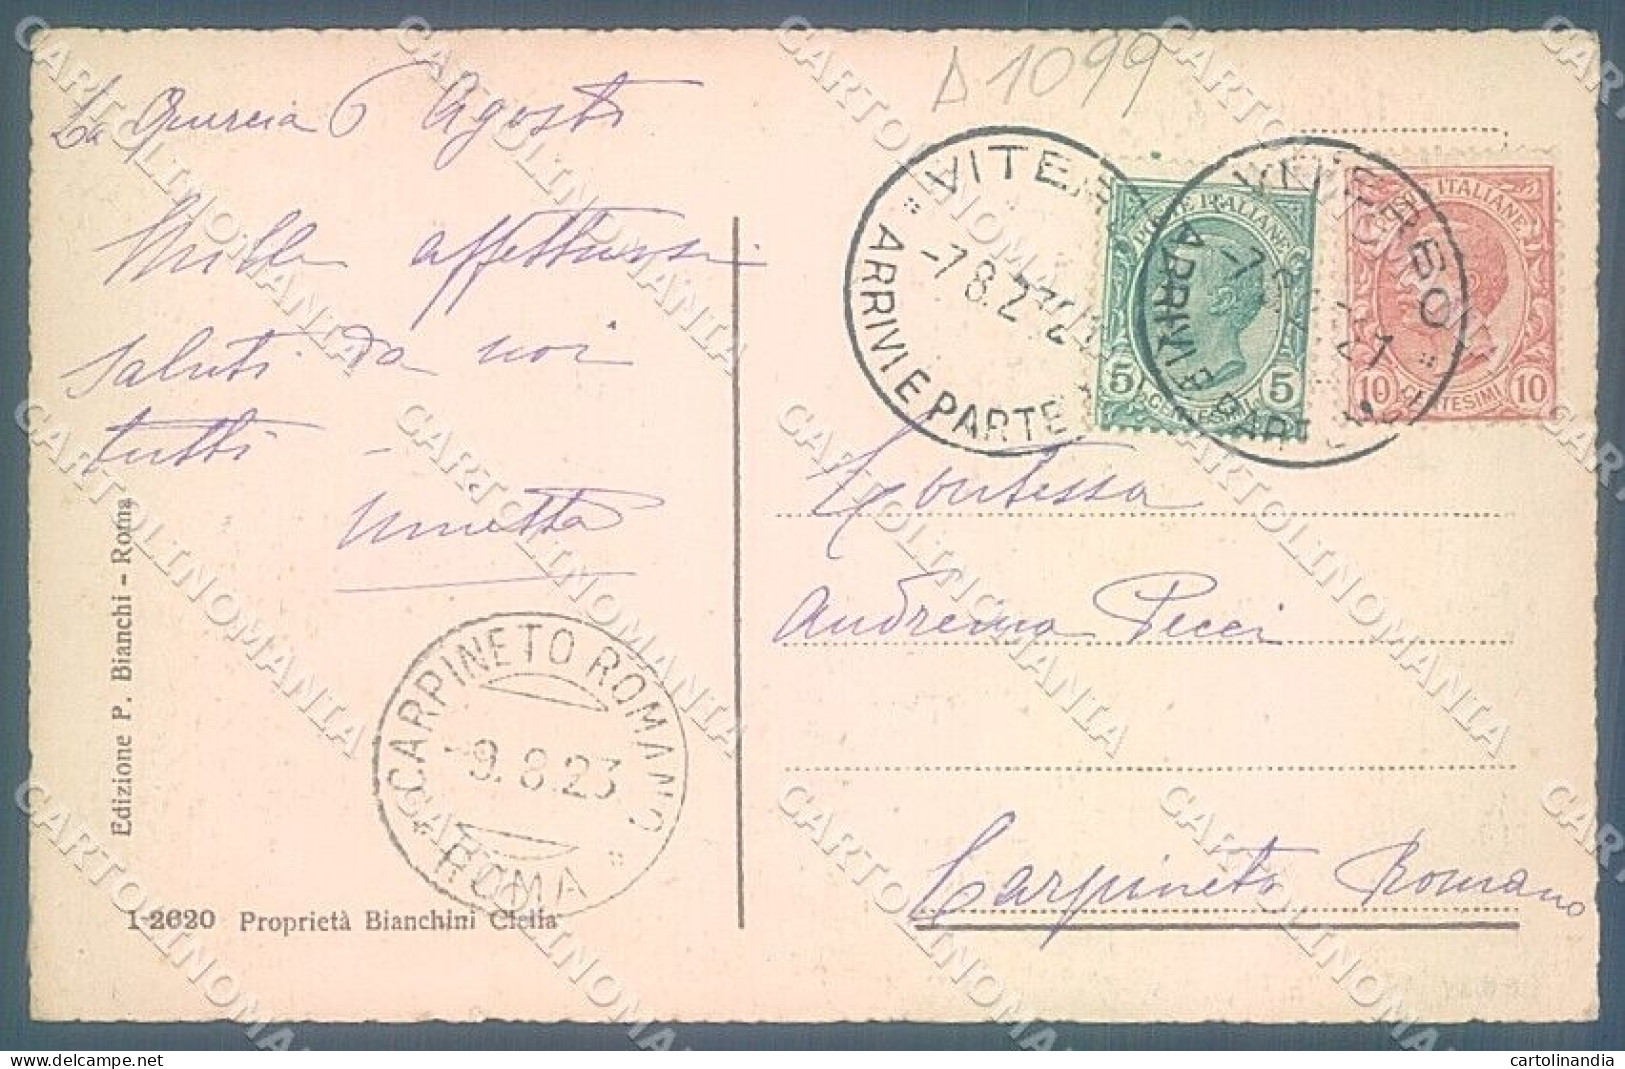 Δ 1099
La Quercia 6 Agosto
Mille affettuosi
saluti da noi
tutti -
Edizione P. Bianchi - Roma
1-2620 Proprietà Bianchini Clelia
CARPINETO ROMANO
-9.8.23
ROMA
VITERBO
-7 8.23 21
ARRIVI E PARTENZE
VITERBO
-7 8.23 21
ARRIVI E PARTENZE
POSTE ITALIANE
5 CENTESIMI 5
POSTE ITALIANE
10 CENTESIMI 10
Contessa
Andreina Pecci
Carpineto Romano
CARTOLINOMANIA
cartolinandia